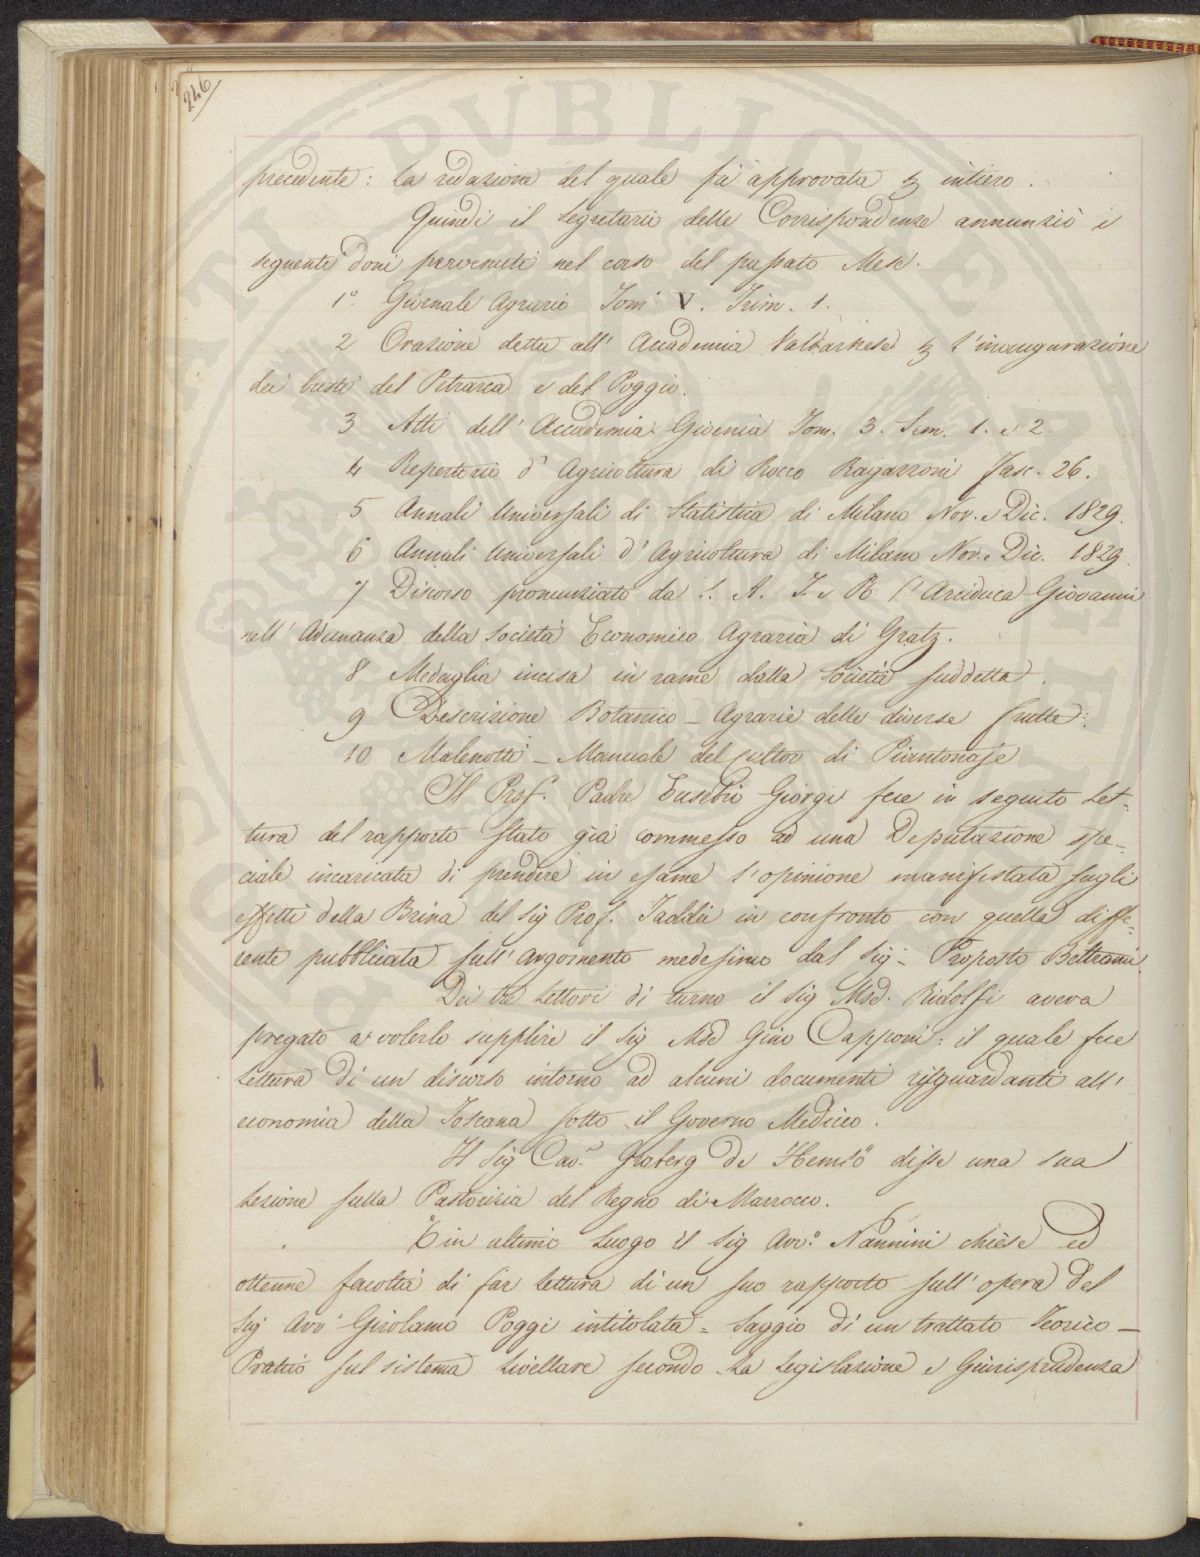 246
precedente: la redazione del quale fù approvata p intiero.
Quindi il Segretario delle Corrispondenze annunziò i
seguenti doni pervenuti nel corso del passato Mese.
1°. Giornale Agrario Tom. V. Trim. 1.
2 Orazione detta all' Accademia Valdarnese p l'inaugurazione
dei busti del Petrarca e del Poggio.
3 Atti dell' Accademia Gioenia Tom. 3. Sem. 1. e 2.
4 Repertorio d' Agricoltura di Rocco Ragazzoni Fasc. 26.
5 Annali Universali di Statistica di Milano Nov. e Dic. 1829.
6 Annali Universali d' Agricoltura di Milano Nov. e Dic. 1829.
7 Discorso pronunziato da S. A. I. e R. l' Arciduca Giovanni
nell' Adunanza della Società Economico Agraria di Gratz.
8 Medaglia incisa in rame dalla Società suddetta.
9 Descrizione Botanico - Agrarie delle diverse frutte:
10 Malenotti - Manuale del cultor di Piantonaje
Il Prof. Padre Eusebio Giorgi fece in seguito let-
tura del rapporto stato già commesso ad una Deputazione spe-
ciale incaricata di prendere in esame l'opinione manifestata sugli
effetti della Brina del Sig Prof. Taddei in confronto con quella diffe-
rente pubblicata sull' argomento medesimo dal Sig. Proposto Beltrami.
Dei tre Lettori di turno il Sig Msd. Ridolfi aveva
pregato a volerlo supplire il Sig Msd Gino Capponi: il quale fece
Lettura di un discorso intorno ad alcuni documenti risguardanti all'
economia della Toscana sotto il Governo Mediceo.
Il Sig Cav.r Graberg de Hemsö disse una sua
Lezione sulla Pastorizia del Regno di Marrocco.
E in ultimo luogo il Sig Avv.o Nannini chiese ed
ottenne facoltà di far lettura di un suo rapporto sull' opera del
Sig Avv Girolamo Poggi intitolata = Saggio di un trattato Teorico -
Pratico sul sistema Livellare secondo la Legislazione e Giurisprudenza